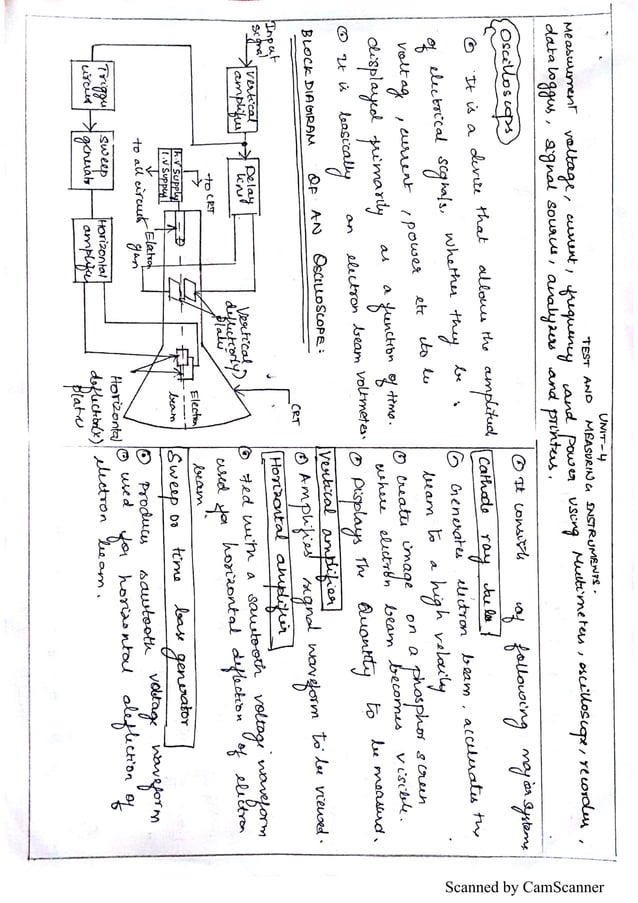 UNIT-4
TEST AND MEASURING INSTRUMENTS.
Measurement voltage, current, frequency and power using Multimeters, oscilloscope, recorders,
data loggers, signal sources, analyzers and printers.
Oscilloscope
It is a device that allows the amplitude
of electrical signals, whether they be
voltage, current, power etc to be
displayed primarily as a function of time.
It is basically an electron beam voltmeter.
BLOCK DIAGRAM OF AN OSCILLOSCOPE:
Input
signal
Vertical
amplifier
Delay
line
→ to CRT
H.V supply
L.V supply
to all circuit
Electron
gun
Vertical
deflector(y)
plate
CRT
Trigger
circuit
Sweep
generator
Horizontal
amplifier
Electron
beam
Horizontal
deflector(x)
plates
It consists of following major systems
Cathode ray tube
Generates electron beam, accelerates the
beam to a high velocity
creates image on a phosphor screen
where electron beam becomes visible.
Displays the Quantity to be measured.
Vertical amplifier
Amplifies signal waveform to be viewed.
Horizontal amplifier
Fed with a sawtooth voltage waveform
used for horizontal deflection of electron
beam.
Sweep or time base generator
Produces sawtooth voltage waveform
used for horizontal deflection of
electron beam.
Scanned by CamScanner